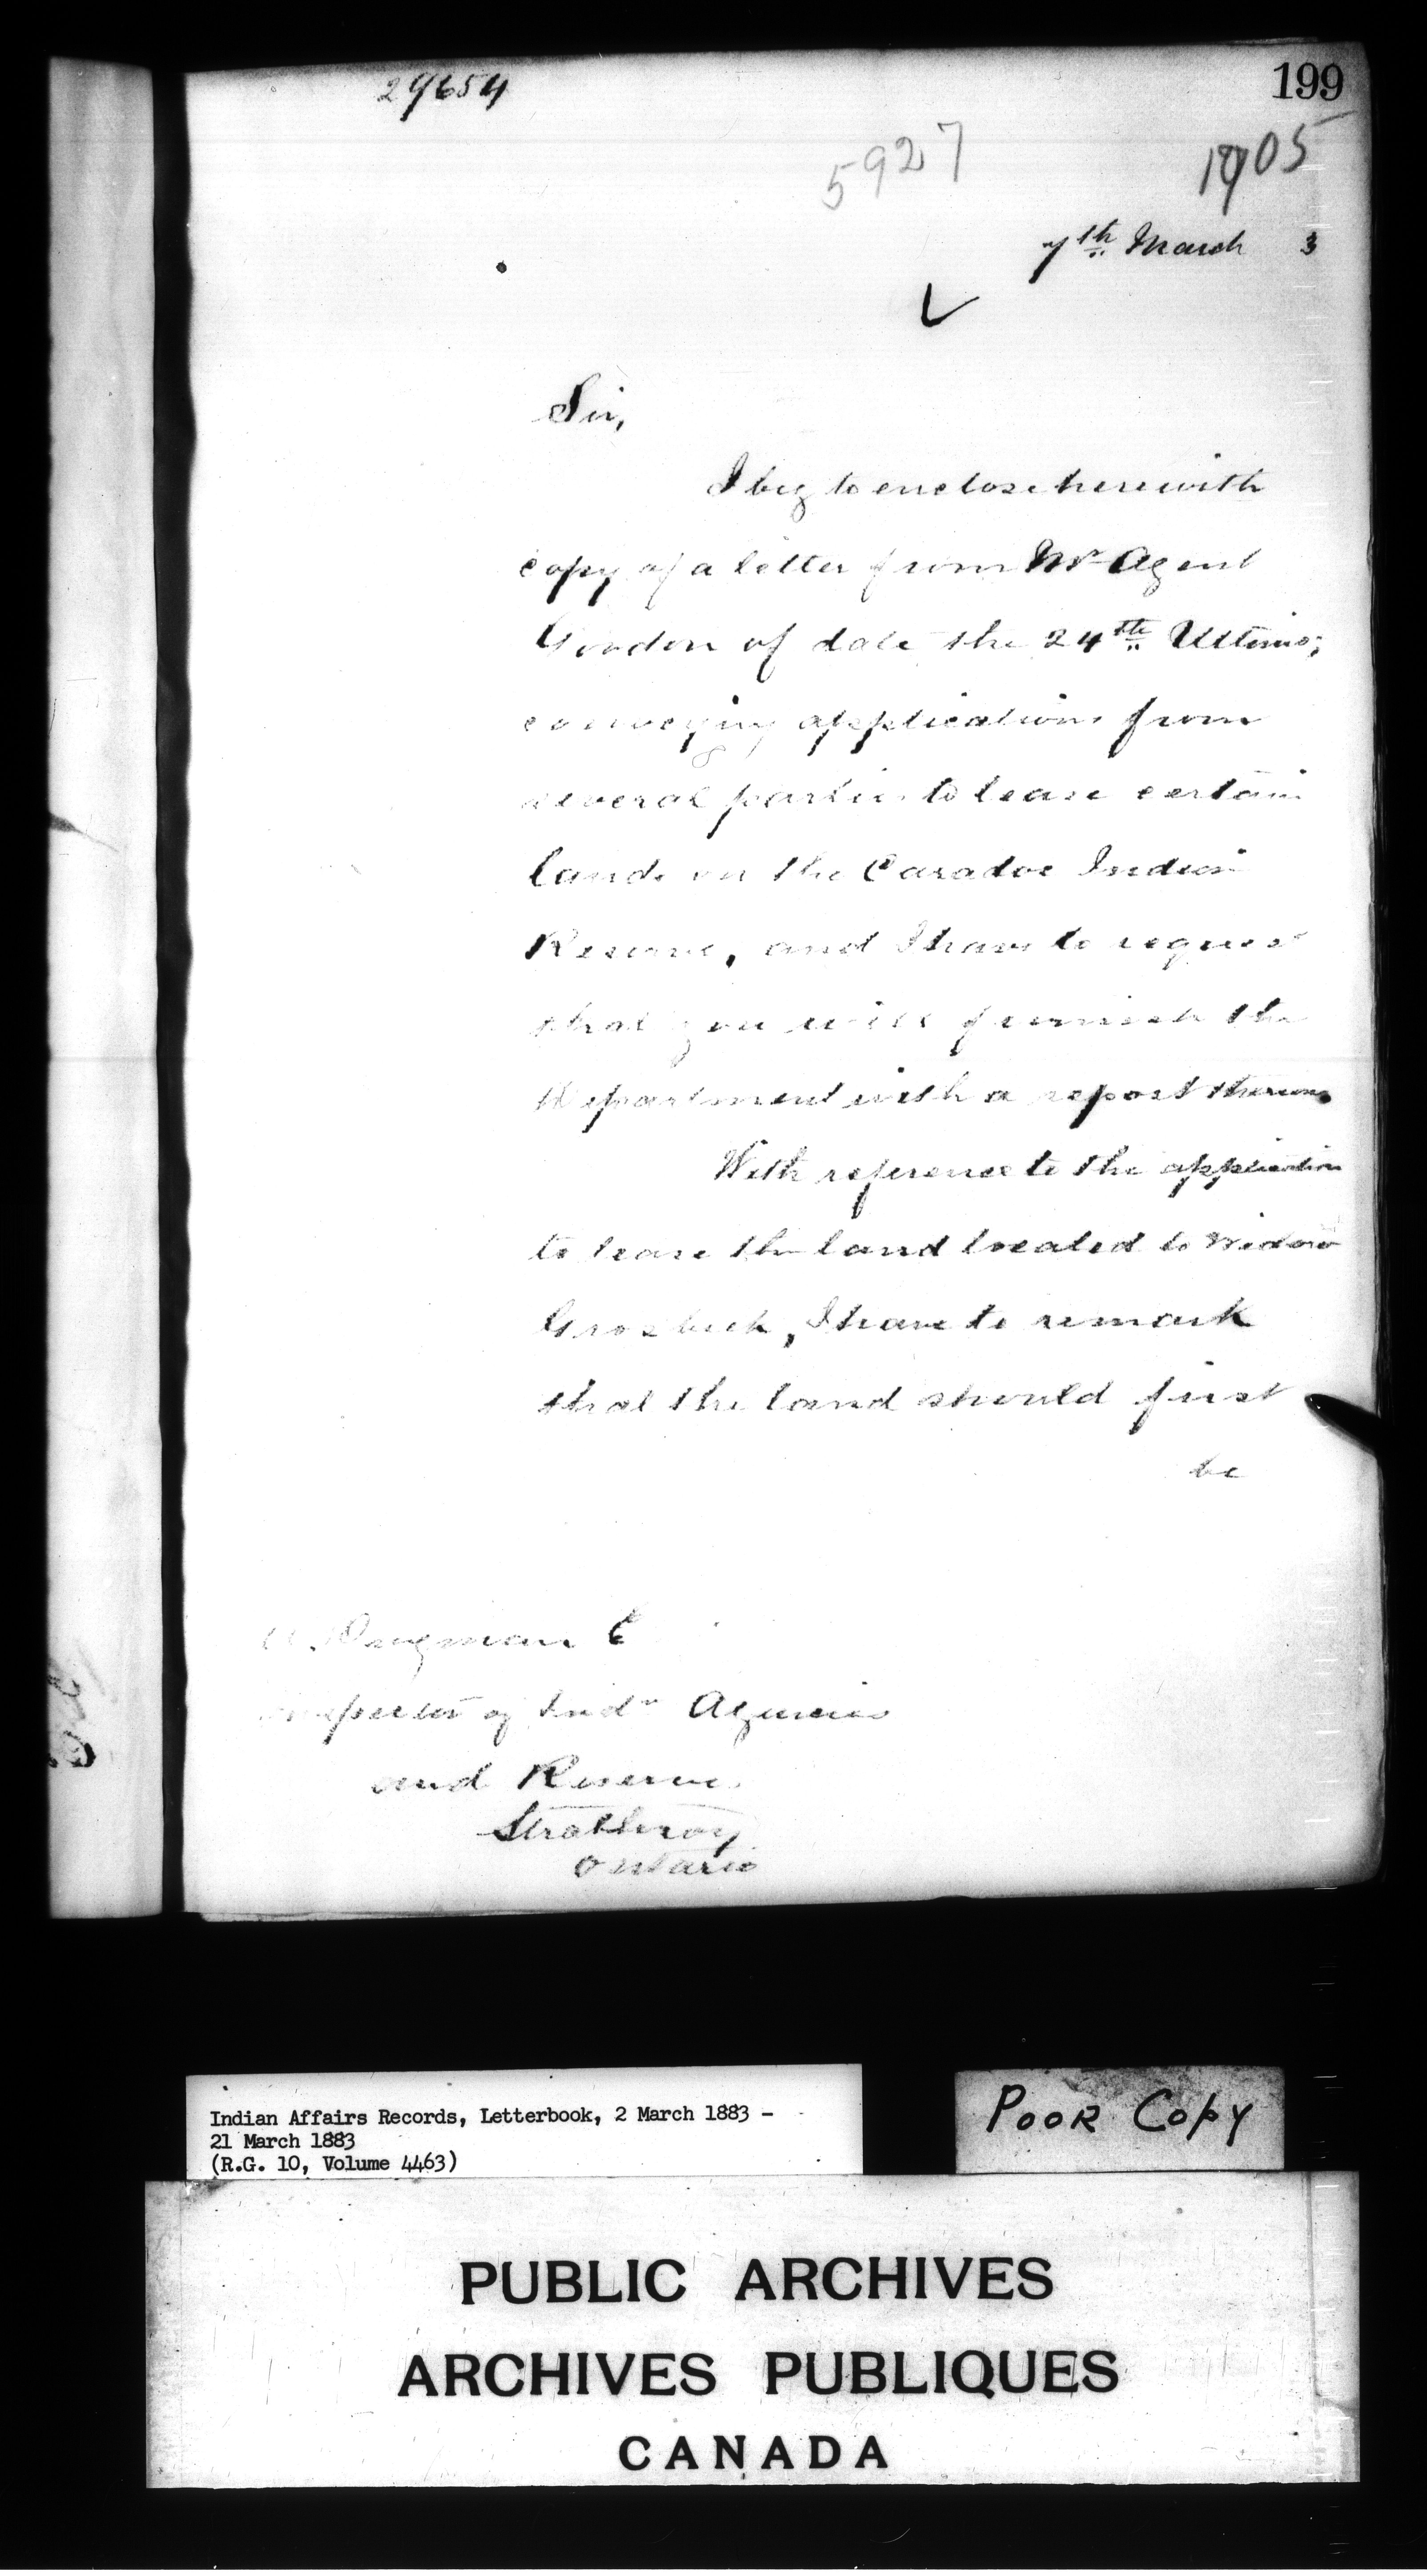 29654
199
5927
1905
7th March 3
Sir,
I beg to enclose herewith
copy of a letter from Mr Agent
Gordon of date the 24th Ultimo;
conveying applications from
several parties to lease certain
lands on the Caradoc Indian
Reserve, and I have to request
that you will furnish the
Department with a report thereon.
With reference to the application
to lease the land located to Widow
Grosbeck, I have to remark
that the land should first
be
Dingman E
Inspector of Indn Agencies
and Reserves
Strathroy
Ontario
Indian Affairs Records, Letterbook, 2 March 1883 -
21 March 1883
(R.G. 10, Volume 4463)
POOR COPY
PUBLIC ARCHIVES
ARCHIVES PUBLIQUES
CANADA